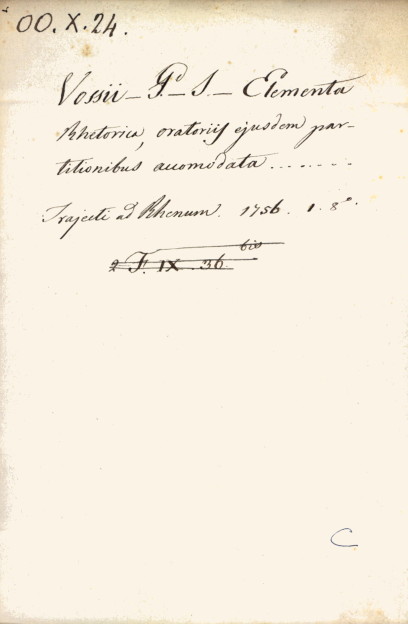 OO.X.24.
Vossii - G.d - I - Elementa
Rhetorica, oratoriis ejusdem par-
titionibus accomodata .......
Trajecti ad Rhenum. 1756. 1. 8°.
bis
2 F. IX. 36
C